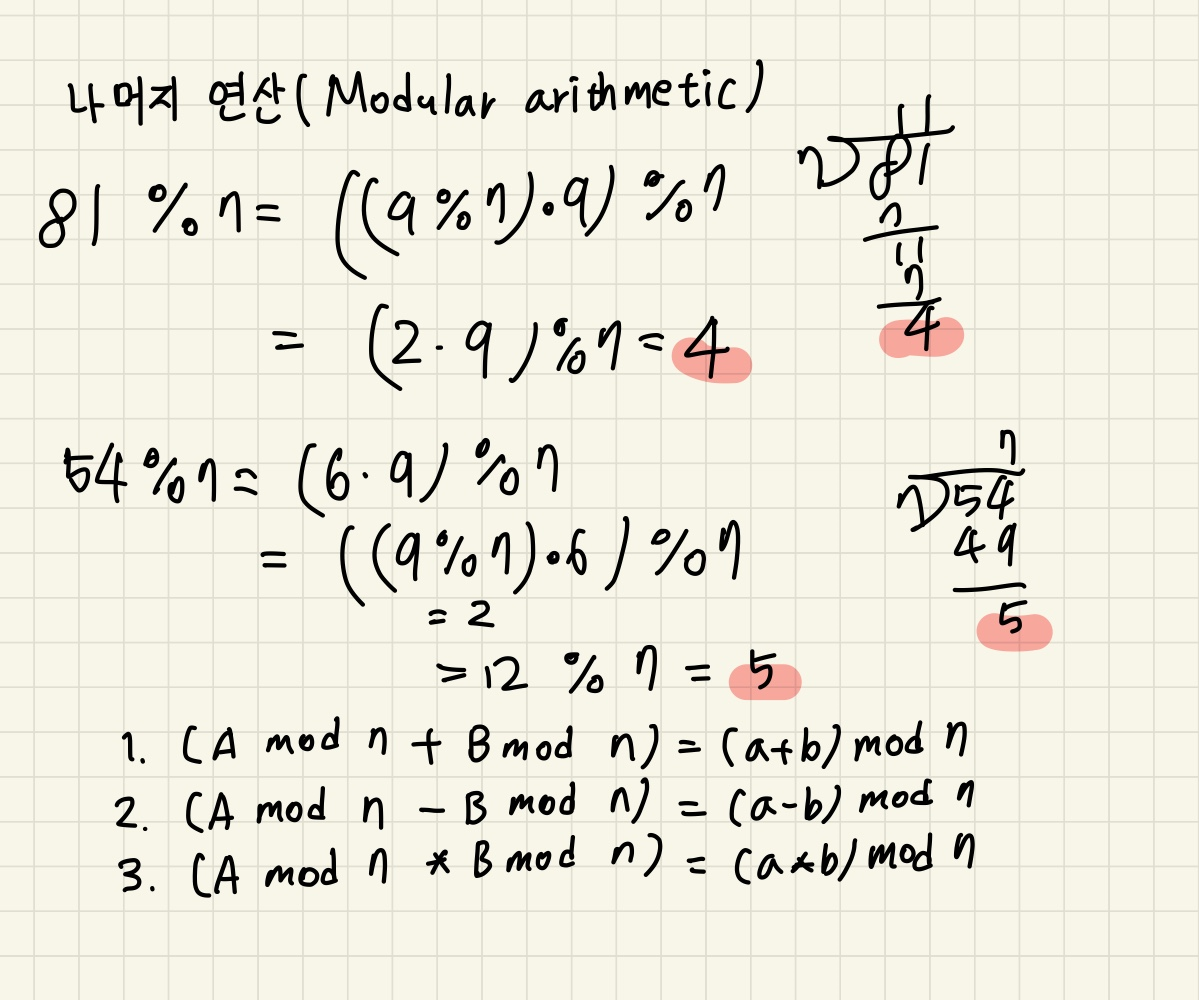 나머지 연산(Modular arithmetic)
81 % 7 = ((9 % 7)·9) % 7
= (2·9) % 7 = 4
11
7)81
7
11
7
4
54 % 7 = (6·9) % 7
= ((9 % 7)·6) % 7
= 2
= 12 % 7 = 5
7
7)54
49
5
1. (A mod n + B mod n) = (a+b) mod n
2. (A mod n - B mod n) = (a-b) mod n
3. (A mod n * B mod n) = (a*b) mod n